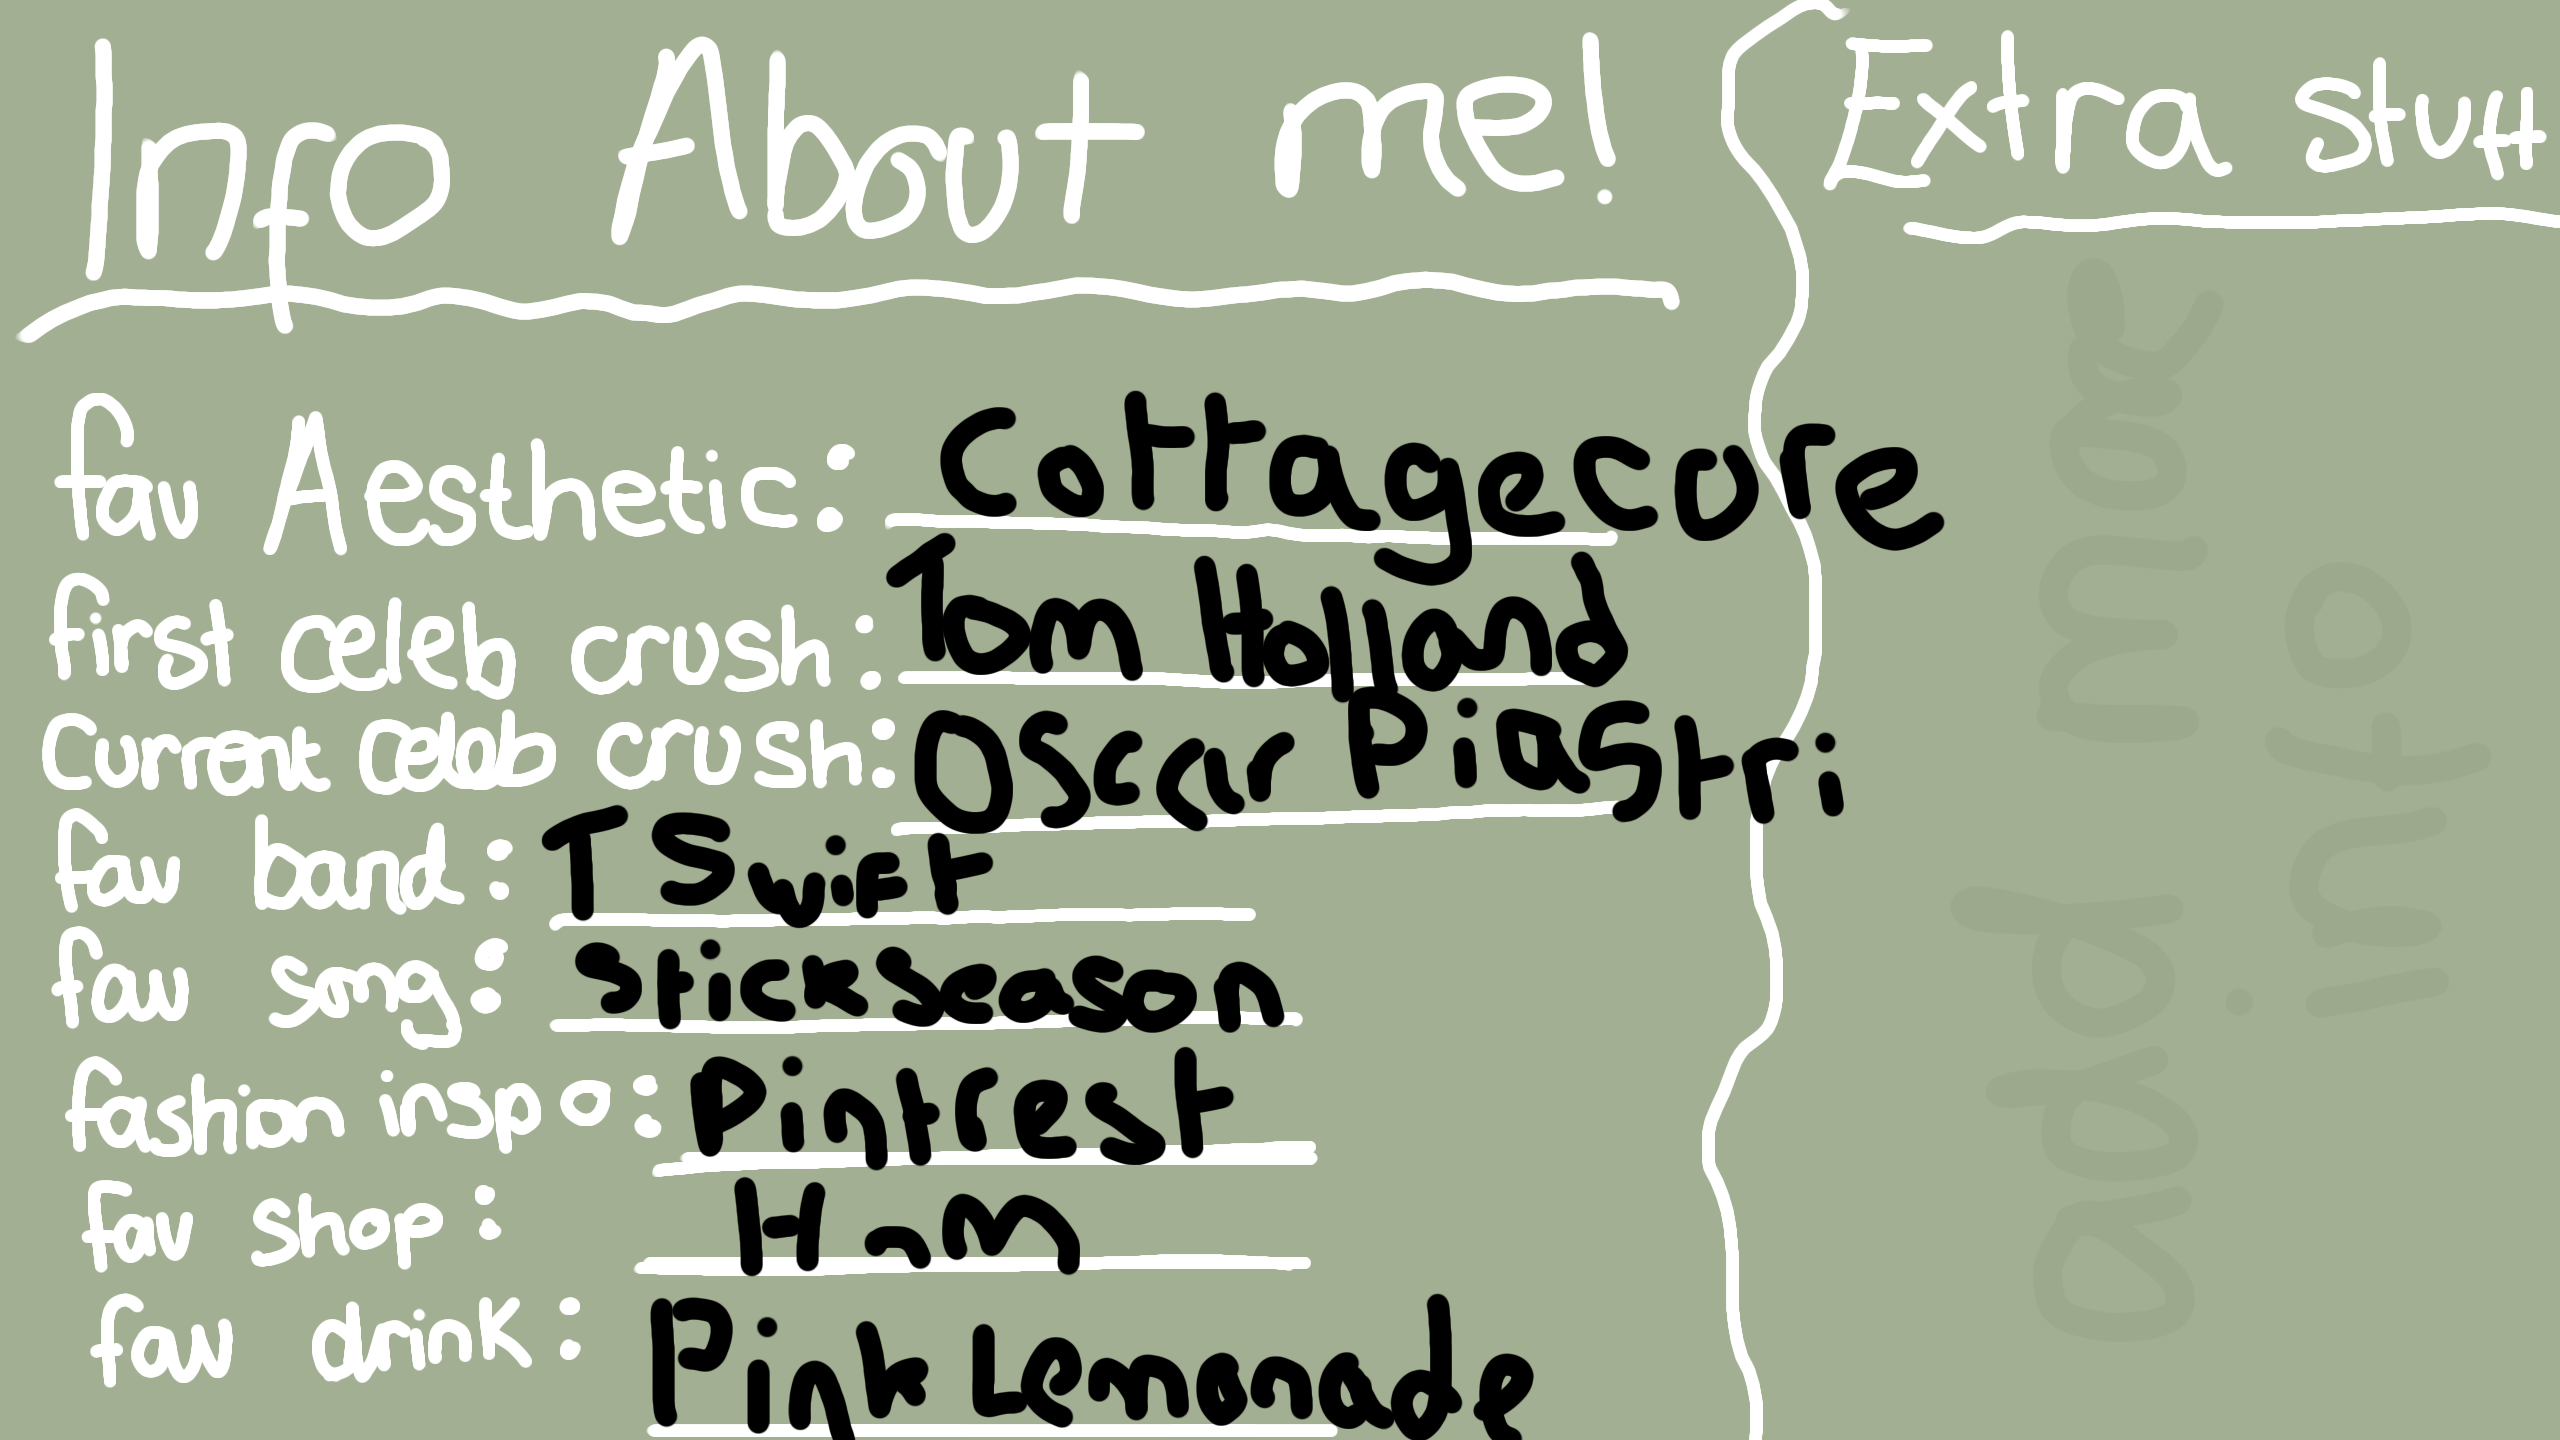 Info About me!
fav Aesthetic: Cottagecore
first celeb crush: Tom Holland
Current Celeb crush: Oscar Piastri
fav band: T Swift
fav song: Stick Season
fashion inspo: Pintrest
fav shop: H n M
fav drink: Pink Lemonade
Extra stuff
add mor
info